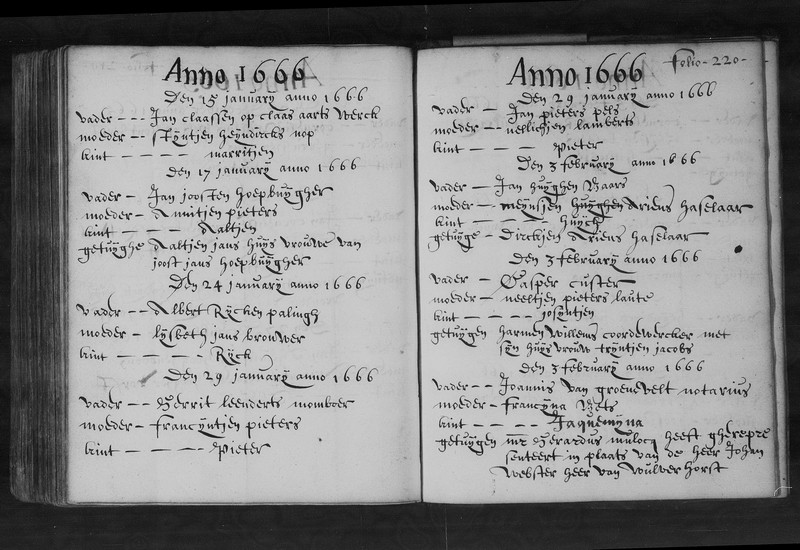 Anno 1666
Den 15 january anno 1666
vader - - - Jan claassen op claas aarts werck
moeder - - styntjen heyndircks nop
kint - - - - - marritjen
den 17 january anno 1666
vader - Jan joosten hoepbuygher
moeder - Annitjen pieters
kint - - - - - Aaltjen
getuyghe Aaltjen jans huys vrouwe van
joost jans hoepbuygher
Den 24 january anno 1666
vader - - Albert Rycken palingh
moeder - lysbeth jans brouwer
kint - - - - - Ryck
Den 29 january anno 1666
vader - - Gerrit leenderts momboer
moeder - francyntjen pieters
kint - - - - - Pieter
Folio - 220 -
Anno 1666
Den 29 january anno 1666
vader - Jan pieters pels
moeder - - neeltichjen lamberts
kint - - - - pieter
Den 3 february anno 1666
vader - Jan huyghen Baars
moeder - meynsjen huyghen Ariens haselaar
kint - - - - - huych
getuyge - Dirckjen Ariens haselaar
Den 3 february anno 1666
vader - - Casper custer
moeder - neeltjen pieters laute
kint - - - - - josyntjen
getuygen harmen willems coordewercker met
syn huys vrouw tryntjen jacobs
Den 3 february anno 1666
vader - - Joannis van groenevelt notarius
moeder - francyna Bets
kint - - - - - Jaquemyna
getuygen mr Gerardus mulock heeft gherepre
senteert in plaats van de heer Johan
Webster heer van wulverhorst